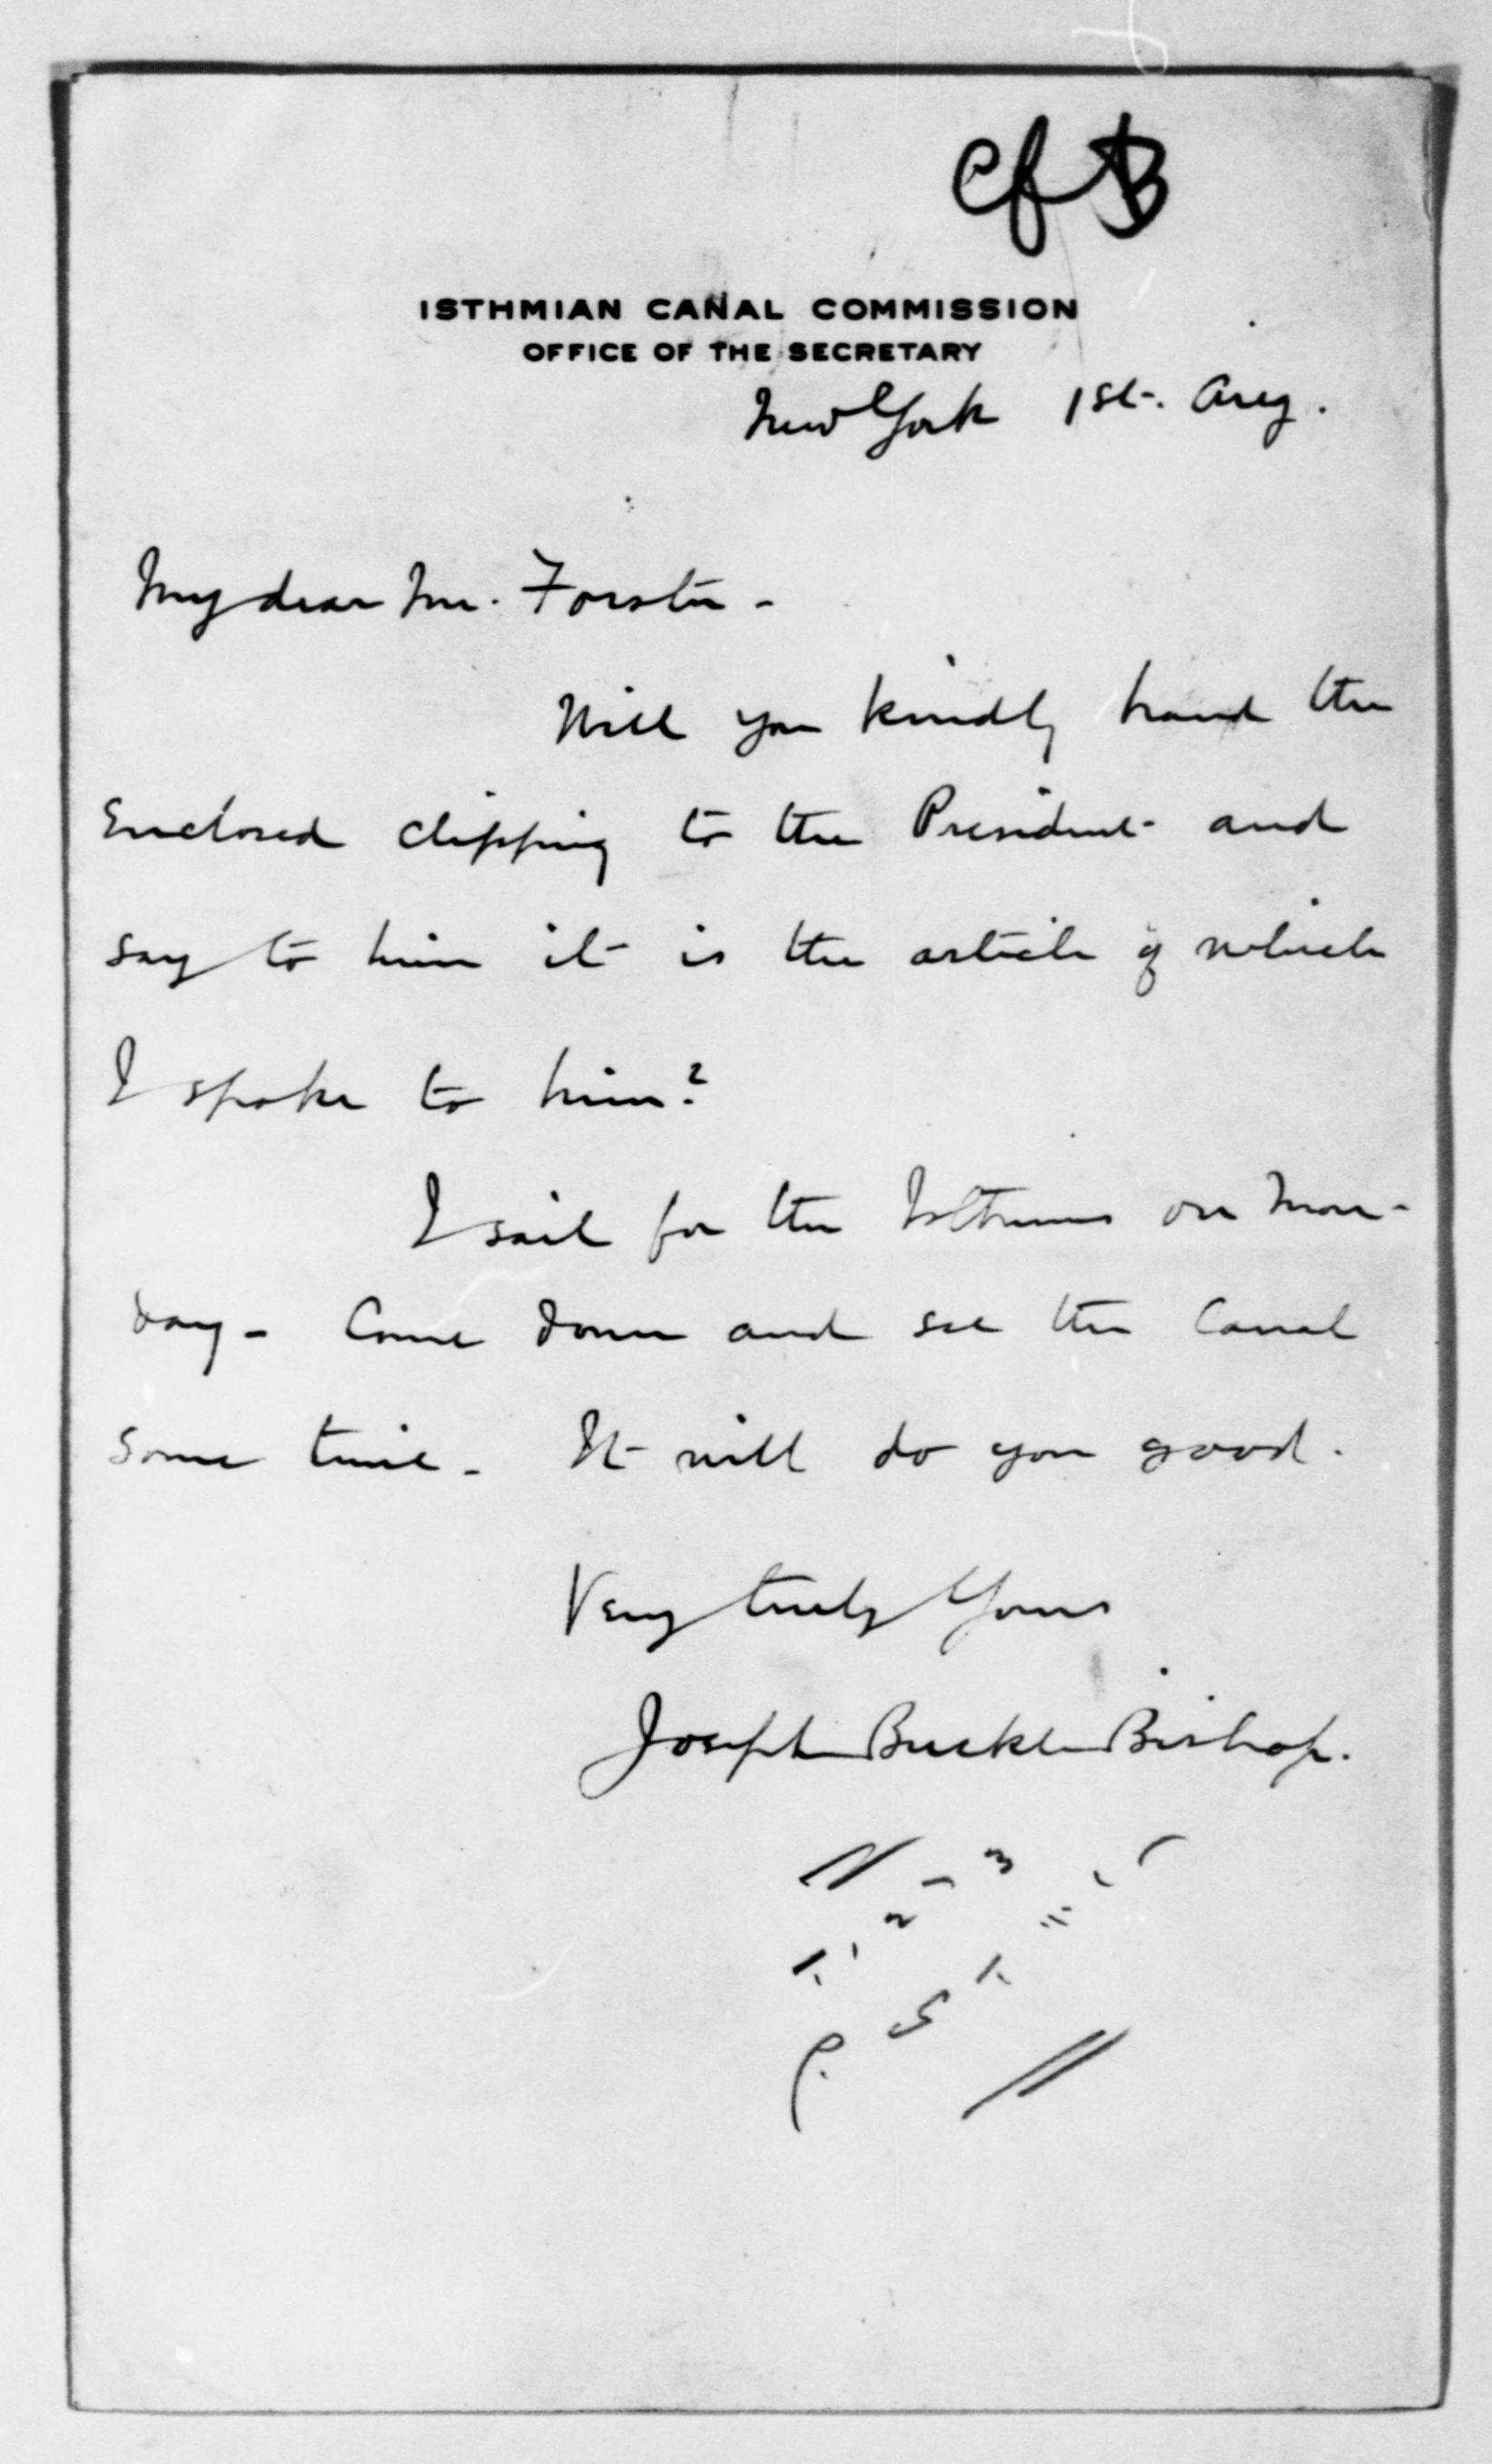 CfB
ISTHMIAN CANAL COMMISSION
OFFICE OF THE SECRETARY
New York 1st. Aug.
My dear Mr. Forster -
Will you kindly hand the
enclosed clipping to the President and
say to him it is the article of which
I spoke to him?
I sail for the Isthmus on Mon-
day - Come down and see the Canal
some time - It will do you good.
Very truly Yours
Joseph Bucklin Bishop.